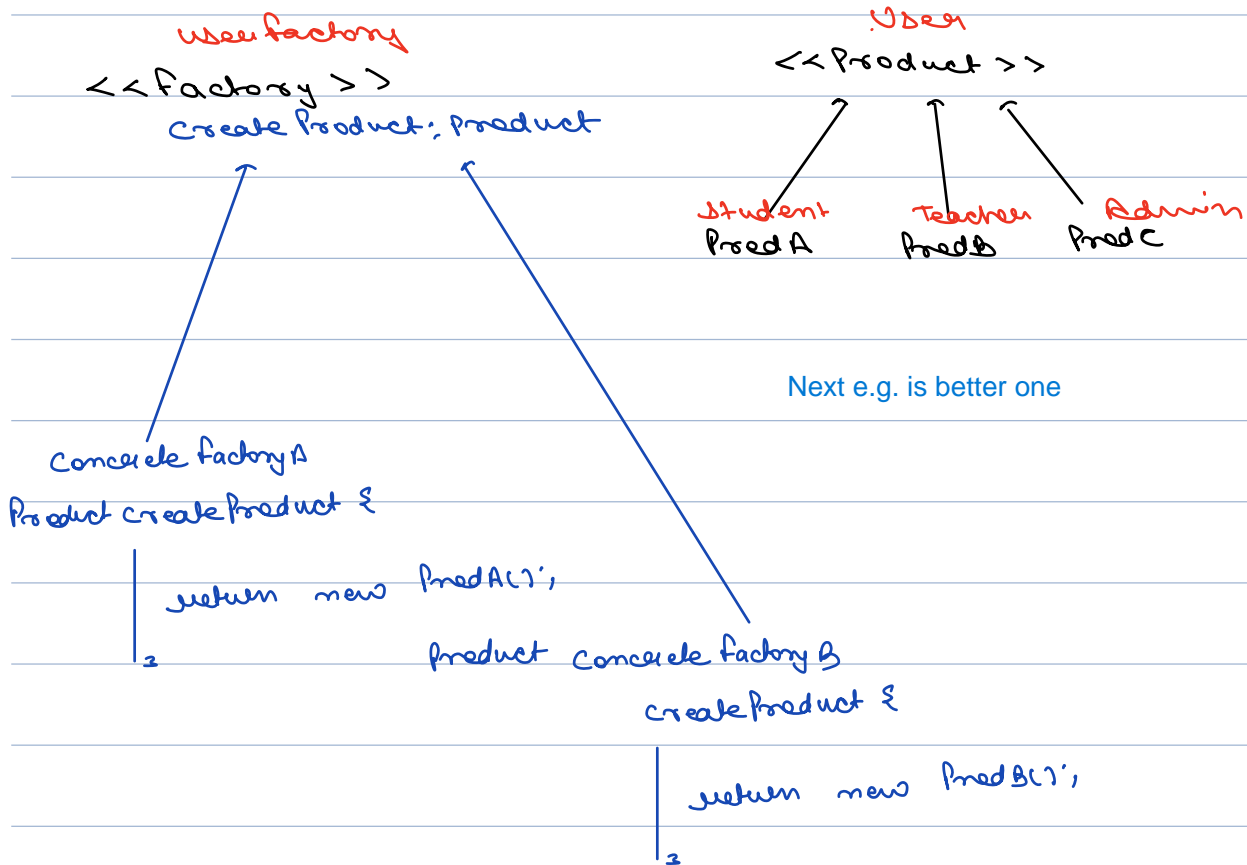 userfactory
<<Factory>>
createProduct: product
User
<<Product>>
Student Teacher Admin
ProdA ProdB ProdC
Next e.g. is better one
Concrete factory A
Product createProduct {
return new ProdA();
}
product Concrete factory B
createProduct {
return new ProdB();
}